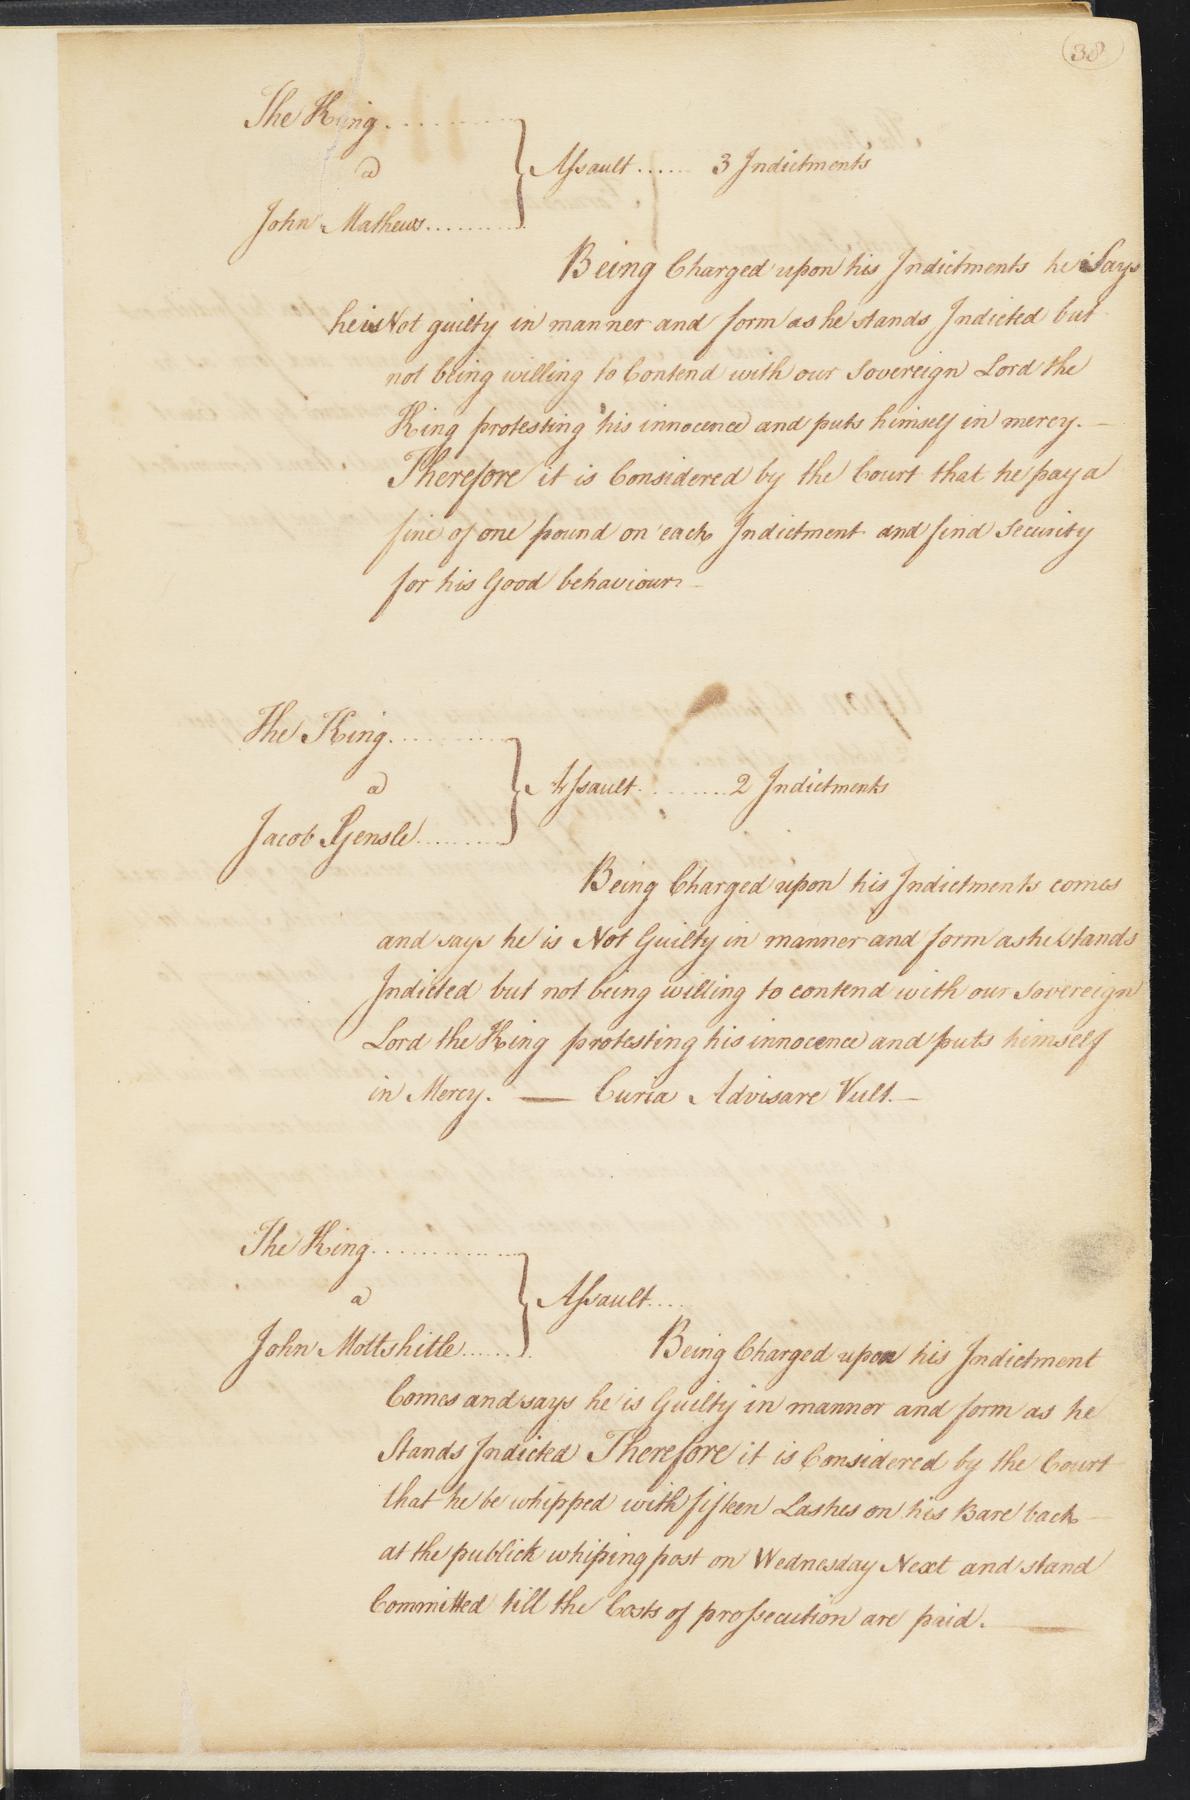 38
The King............
a
John Mathews..........
Assault...... 3 Indictments
Being Charged upon his Indictments he Says
he is Not guilty in manner and form as he stands Indicted but
not being willing to Contend with our Sovereign Lord the
King protesting his innocence and puts himself in mercy.
Therefore it is Considered by the Court that he pay a
fine of one pound on each Indictment and find Security
for his Good behaviour.
The King............
a
Jacob Gensle..........
Assault..........2 Indictments
Being Charged upon his Indictments comes
and says he is Not Guilty in manner and form as he stands
Indicted but not being willing to contend with our Sovereign
Lord the King protesting his innocence and puts himself
in Mercy. — Curia Advisare Vult.—
The King..............
a
John Mottshitle.......
Assault....
Being Charged upon his Indictment
Comes and says he is Guilty in manner and form as he
Stands Indicted Therefore it is Considered by the Court
that he be whipped with fifteen Lashes on his Bare back
at the publick whiping post on Wednesday Next and stand
Committed till the Costs of prossecution are paid.